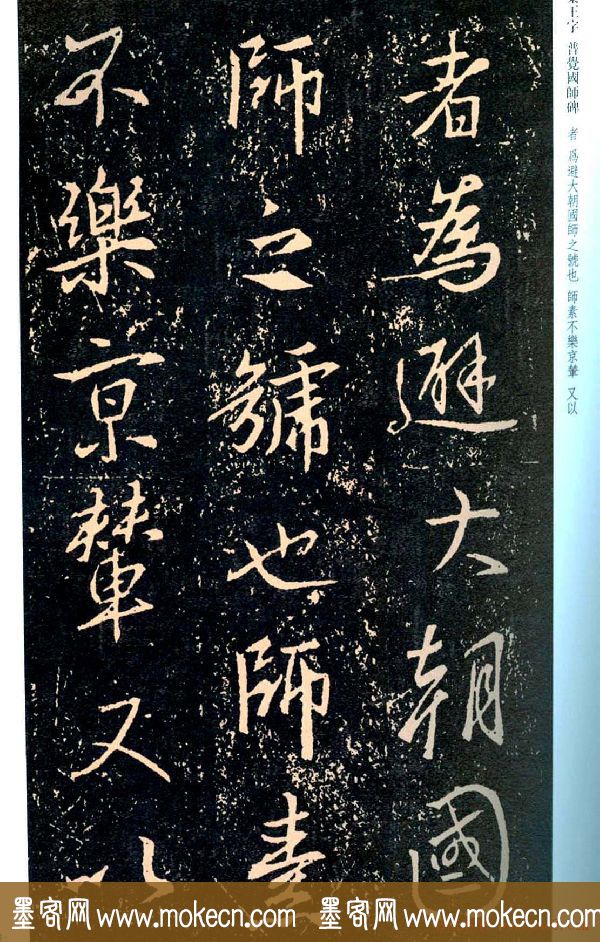 者為避大朝國
師之號也師素
不樂京輦又以
集王字 普覺國師碑 者 爲避大朝國師之號也 師素不樂京輦 又以
墨客网 www.mokecn.com 墨客网 www.mokecn.com